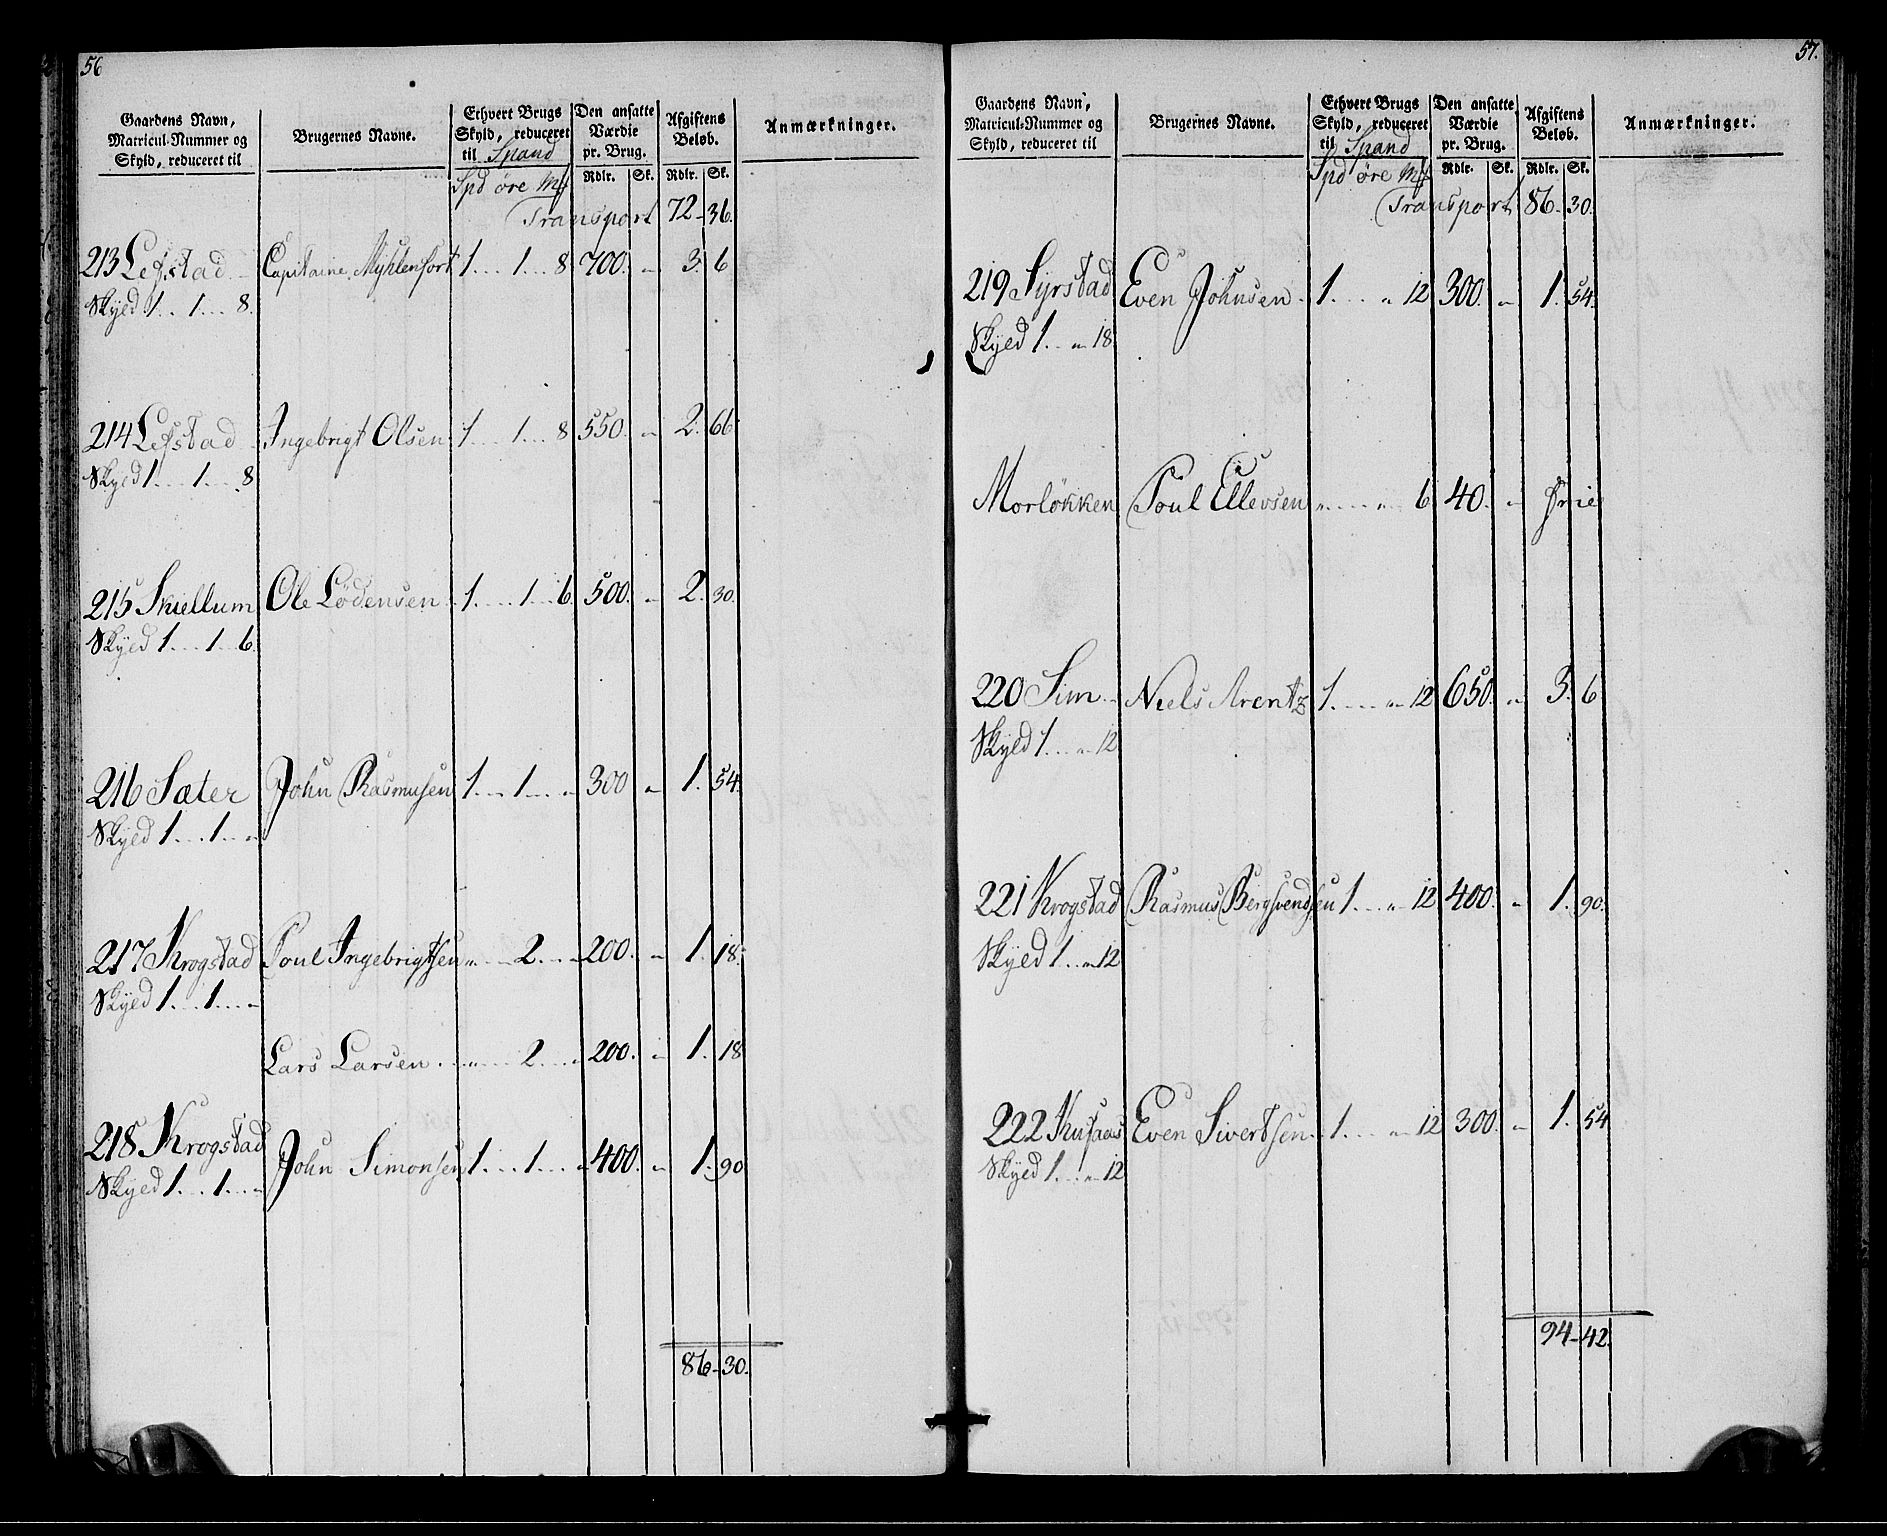 56
Gaardens Navn,
Matricul-Nummer og
Skyld, reduceret til
Brugernes Navne.
Ethvert Brugs
Skyld, reduceret
til Spand
Spd øre Mk
Den ansatte
Værdie
pr. Brug.
Rdlr. Sk.
Afgiftens
Beløb.
Rdlr. Sk.
Anmærkninger.
Transport 72 - 36.
213 Lefstad Capitaine Myhlenfort 1 .... 1 ... 8 700. " 3. 6
Skyed 1 .. 1 ... 8.
214 Lefstad Ingebrigt Olsen 1 .... 1 ... 8 550. " 2. 66
Skyed 1 ... 1 ... 8
215 Skiellum Ole Lödensen 1 .... 1 ... 6 500. " 2. 30.
Skyed 1 ... 1 .. 6
216 Sæter John Rasmusen 1 ... 1 ... " 300 " 1. 54
Skyed 1 ... 1 ... "
217 Krogstad Poul Ingebrigtsen " ... 2 ... " 200. " 1. 18.
Skyed 1 ... 1 ... "
Lars Larsen " ... 2 ... " 200. " 1. 18
218 Krogstad John Simonsen 1 ... 1 ... " 400. " 1. 90
Skyed 1 ... 1 ... "
86 - 30.
57.
Gaardens Navn,
Matricul-Nummer og
Skyld, reduceret til
Brugernes Navne.
Ethvert Brugs
Skyld, reduceret
til Spand
Spd øre Mk
Den ansatte
Værdie
pr. Brug.
Rdlr. Sk.
Afgiftens
Beløb.
Rdlr. Sk.
Anmærkninger.
Transport 86 - 30.
219 Syrstad Even Johnsen 1 .... " 12 300. " 1. 54
Skyed 1 .. " 18.
Morlökken Poul Ellevsen " .... " .. 6 40. "
220 Sim Niels Arentz 1 .... " 12 650. " 3. 6
Skyld 1 .. " 12
221 Krogstad Rasmus Bergsvendsen 1 ... " 12 400. " 1. 90.
Skyed 1 .. " 12
222 Kusaas Even Sivertsen 1 ... " 12 300. " 1. 54
Skyed 1 ... " 12
94 - 42.